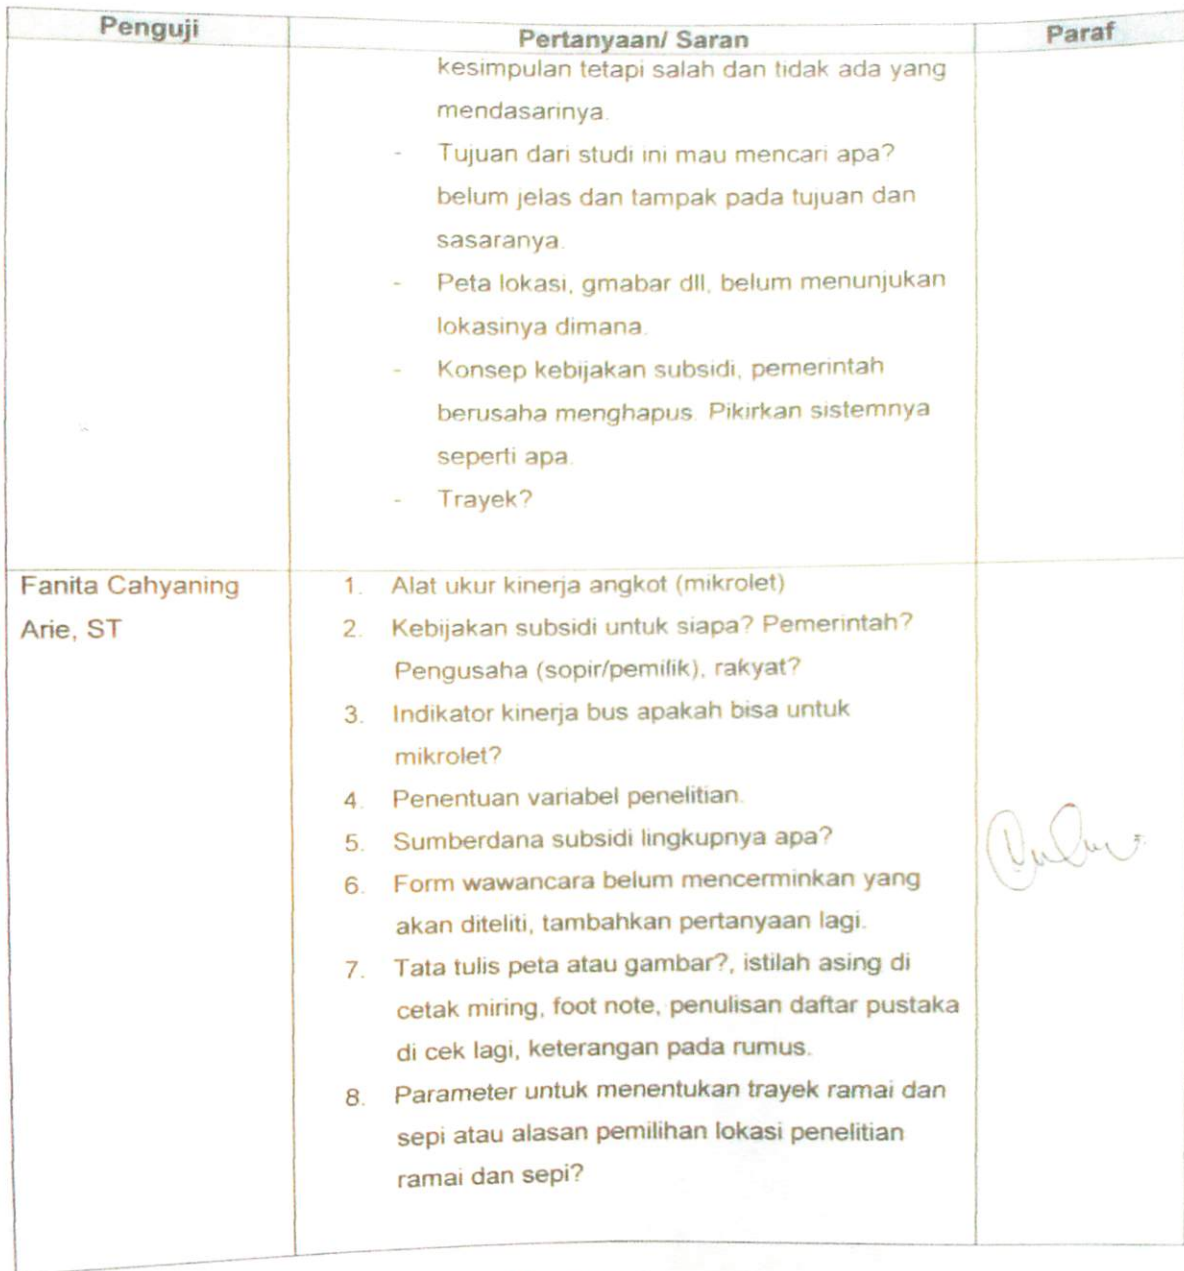 Penguji
Pertanyaan/ Saran
Paraf
kesimpulan tetapi salah dan tidak ada yang
mendasarinya.
- Tujuan dari studi ini mau mencari apa?
belum jelas dan tampak pada tujuan dan
sasaranya.
- Peta lokasi, gmabar dll, belum menunjukan
lokasinya dimana.
- Konsep kebijakan subsidi, pemerintah
berusaha menghapus. Pikirkan sistemnya
seperti apa.
- Trayek?
Fanita Cahyaning
Arie, ST
1. Alat ukur kinerja angkot (mikrolet)
2. Kebijakan subsidi untuk siapa? Pemerintah?
Pengusaha (sopir/pemilik), rakyat?
3. Indikator kinerja bus apakah bisa untuk
mikrolet?
4. Penentuan variabel penelitian.
5. Sumberdana subsidi lingkupnya apa?
6. Form wawancara belum mencerminkan yang
akan diteliti, tambahkan pertanyaan lagi.
7. Tata tulis peta atau gambar?, istilah asing di
cetak miring, foot note, penulisan daftar pustaka
di cek lagi, keterangan pada rumus.
8. Parameter untuk menentukan trayek ramai dan
sepi atau alasan pemilihan lokasi penelitian
ramai dan sepi?